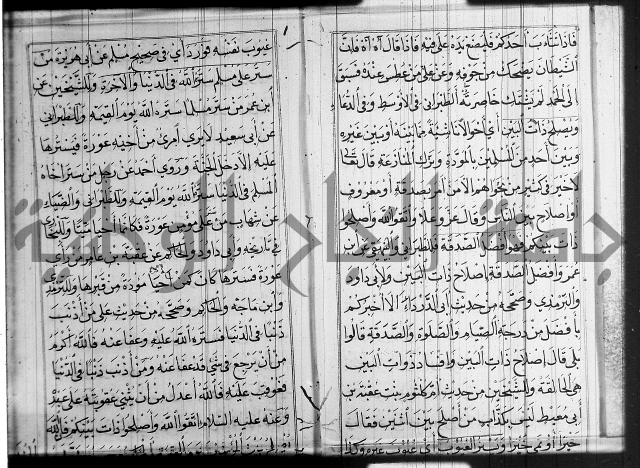 فاذا تثاءب احدكم فليضع يده على فيه فاذا قال آه آه فان
الشيطان يضحك من جوفه وعن علي من عطس عنده فسبق
الى الحمد لم يشتك خاصرته الطبراني في الاوسط وفي الدعاء
ويصلح ذات البين أي أحوالا ناشئة مما بينه أو بين غيره
وبين أحد من المسلمين بالمودة وترك المنازعة قال تعالى
لا خير في كثير من نجواهم الا من أمر بصدقة أو معروف
أو اصلاح بين الناس وقال عز وعلا واتقوا الله وأصلحوا
ذات بينكم وهو أفضل الصدقة للطبراني والبيهقي عن بن
عمر وأفضل الصدقة اصلاح ذات البين ولأبي داود
والترمذي وصححه من حديث أبي الدرداء ألا أخبركم
بأفضل من درجة الصيام والصلوة والصدقة قالوا
بلى قال إصلاح ذات البين وافساد ذوات البين
هي الحالقة وللشيخين من حديث أم كلثوم بنت عقبة بن
أبي معيط ليس بكذاب من أصلح بين اثنين فقال
خيرا أو نمى خيرا وستر العيوب أي عيوب غيره وكذا
عيوب نفسه فورد أي في صحيح مسلم عن أبي هريرة من
ستر على مسلم ستره الله في الدنيا والآخرة وللشيخين عن
بن عمر من ستر مسلما ستره الله يوم القيمة وللطبراني
عن أبي سعيد لا يرى امرئ من أخيه عورة فيسترها
عليه الا دخل الجنة وروى أحمد عن رجل من ستر أخاه
المسلم في الدنيا ستره الله يوم القيمة وللطبراني والضياء
عن شهاب من ستر على مؤمن عورة فكأنما أحيا ميتا والبخاري
في تاريخه وأبي داود والحاكم عن عقبة بن عامر من رأى
عورة فسترها كان كمن أحيا موؤدة من قبرها وللترمذي
وابن ماجه والحاكم وصححه من حديث علي من أذنب
ذنبا في الدنيا فستره الله عليه وعفا عنه فالله أكرم
من أن يرجع في شيء قد عفا عنه ومن أذنب ذنبا في الدنيا
فعوقب عليه فالله أعدل من أن يثني عقوبته على عبده
وعنه عليه السلام اتقوا الله وأصلحوا ذات بينكم فان الله
جامعة النجاح الوطنية